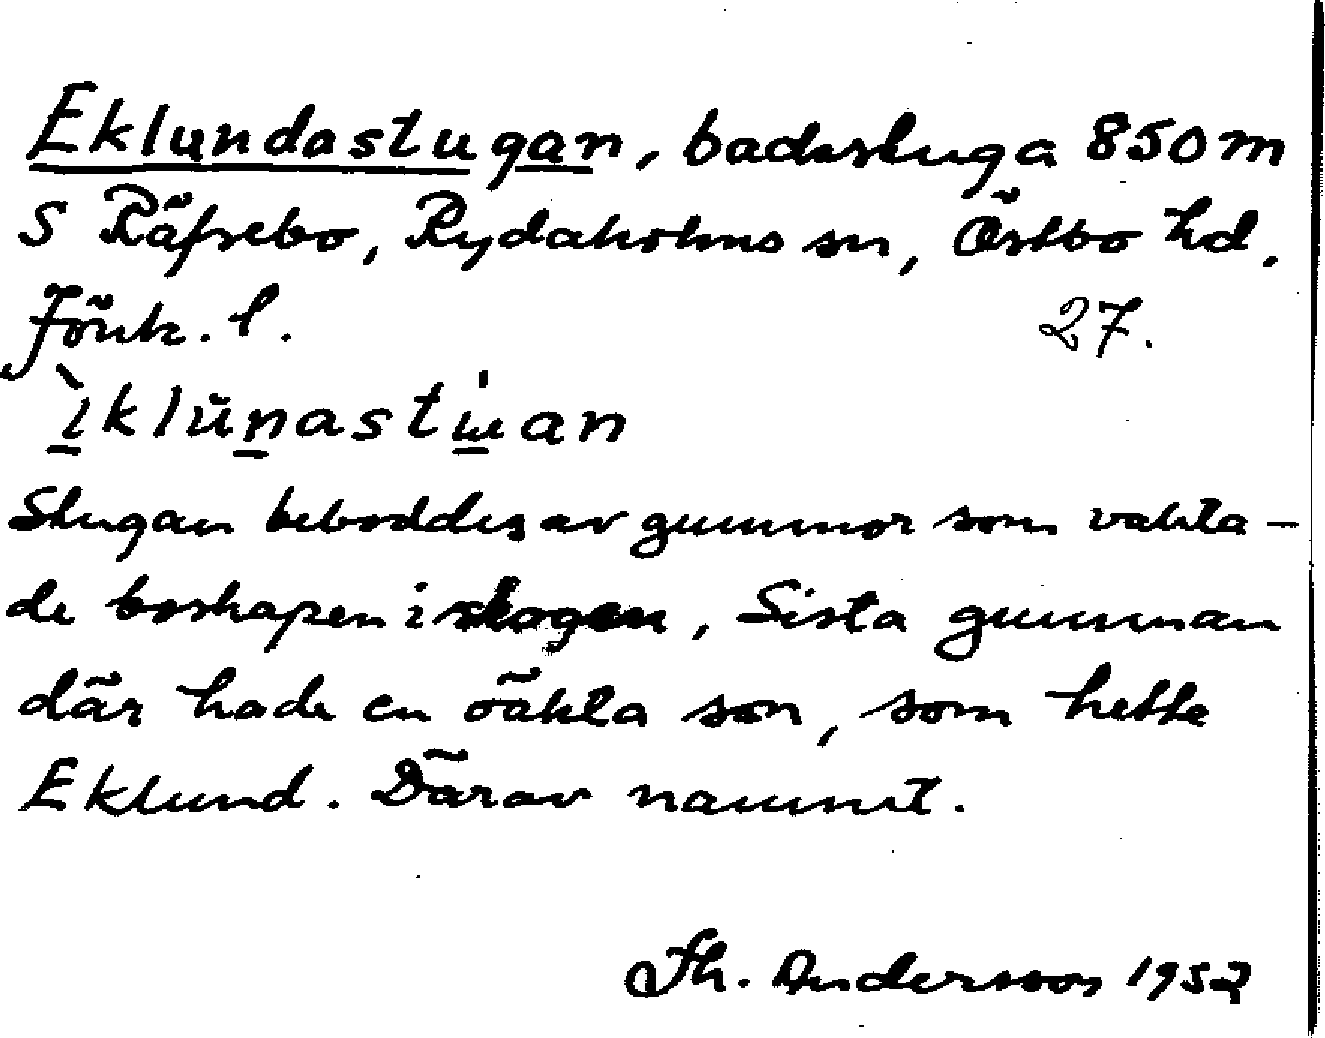 Eklundastugan, badstuga 850 m
S Räfsebo, Rydaholms sn, Östbo hd,
Jönk. l. 27.
ìklŭnastu̇an
Stugan beboddes av gummor som vakta-
de boskapen i skogen, Sista gumman
där hade en oäkta son, som hette
Eklund. Därav namnet.
Th. Andersson 1952